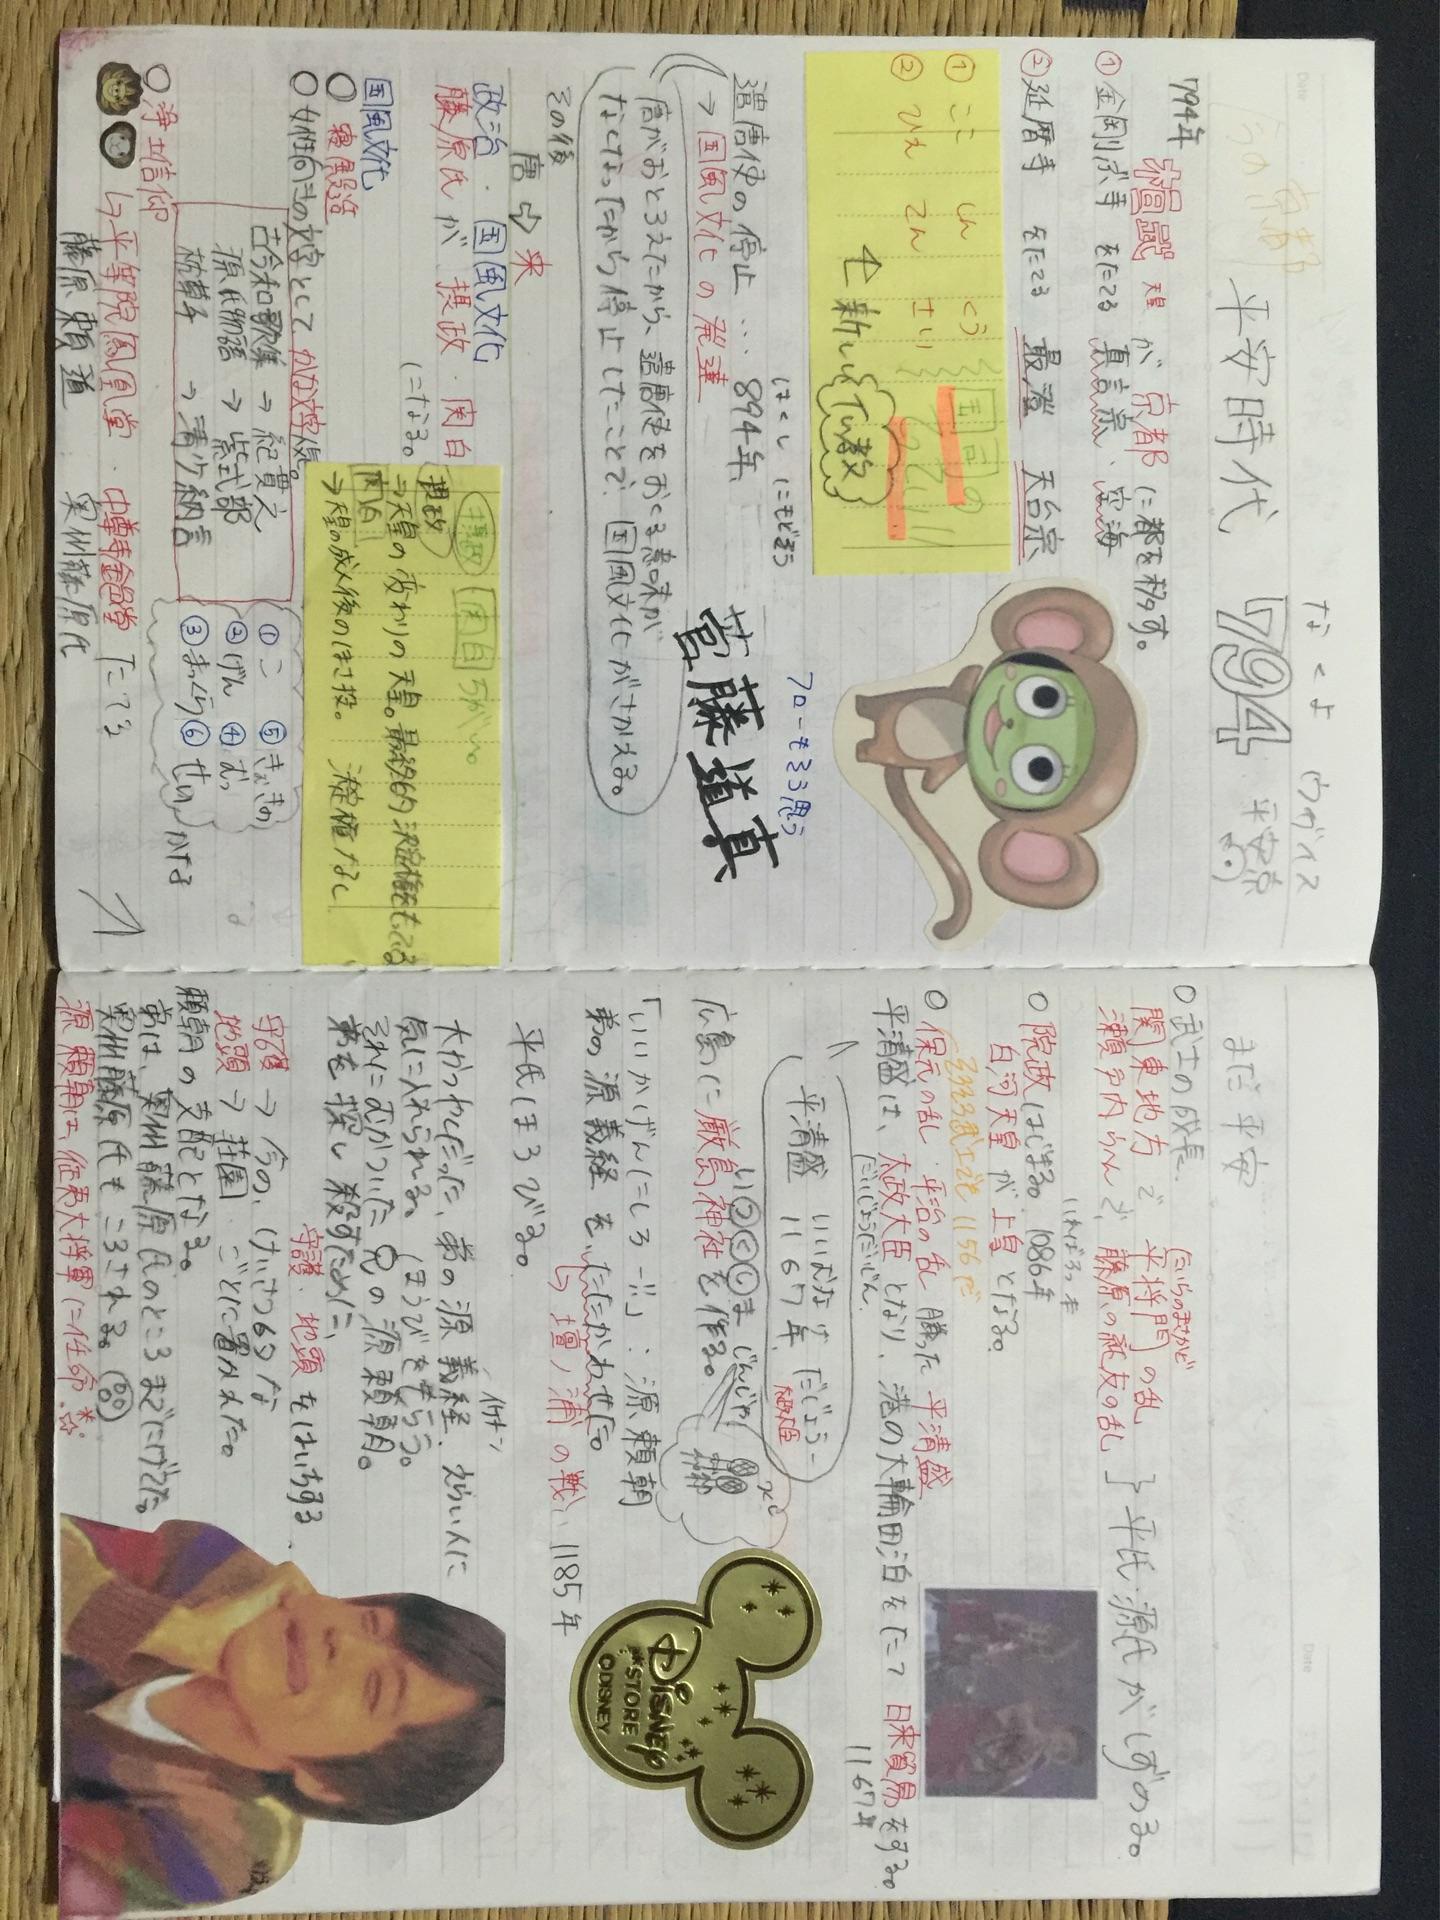 平安時代 794 平安京
なくよ ウグイス
今の京都
794年 桓武天皇 が 京都 に都を移す。
① 金剛ぶ寺 をたてる 真言宗、空海
② 延暦寺 をたてる 最澄 天台宗
① こ しん くう
② ひえ てん さい
↑新しい仏教
はくし にもどそう
遣唐使の停止 … 894年
→ 国風文化の発達
菅藤道真
フローもそう思う
唐がおとろえたから、遣唐使をおくる意味が
なくなったから停止したことで、国風文化がさかえる。
その後
唐 ⇨ 宋
政治・国風文化
藤原氏が 摂政・関白
になる。
摂政 関白 ちがい。
摂政
→天皇の変わりの天皇。最終的決定権もってる
関白
→天皇の成人後のほさ役。 決定権なし
国風文化
○ 寝殿造
○ 女性向きの文字として かな文字
古今和歌集 → 紀貫之
源氏物語 → 紫式部
枕草子 → 清少納言
① こ ⑤ きょきの
② げん ④ むっ
③ まくら ⑥ せい かな
○ 浄土信仰
↳平等院鳳凰堂・中尊寺金色堂 たてる
藤原頼道 奥州藤原氏
まだ平安
○武士の成長
たいらのまさかど
関東地方で 平将門の乱
瀬戸内らへんで、藤原の純友の乱 } 平氏・源氏がしずめる。
いればろっ本
○ 院政はじまる 1086年
白河天皇が上皇となる。
○ 保元の乱・平治の乱 勝った 平清盛
平清盛は、太政大臣となり、港の大輪田泊をたて 日宋貿易をする。
だいじょうだいじん
1167年
いいむな げ だじょうー
平清盛 1167年
太政大臣
い②く①ま じんじゃ
広島に厳島神社を作る。
「いいかげんにしろー!!」: 源頼朝
弟の源義経 をたたかわせた。
↳壇ノ浦の戦い 1185年
平氏ほろびる。
イケメン
大かつやくだった、弟の源義経、えらい人に
気に入れられる。(ほうびをもらう。
それにむかついた兄の源頼朝。
弟を探し殺すために、
守護・地頭をはいちする
守護 → 今の、けいさつ的な
地頭 → 荘園 ごとに置かれた。
頼朝の支配となる。
弟は、奥州藤原氏のところまでにげてた。
奥州藤原氏もころされる。
源頼朝は、征夷大将軍に任命
Disney
STORE
©DISNEY
Date
Date